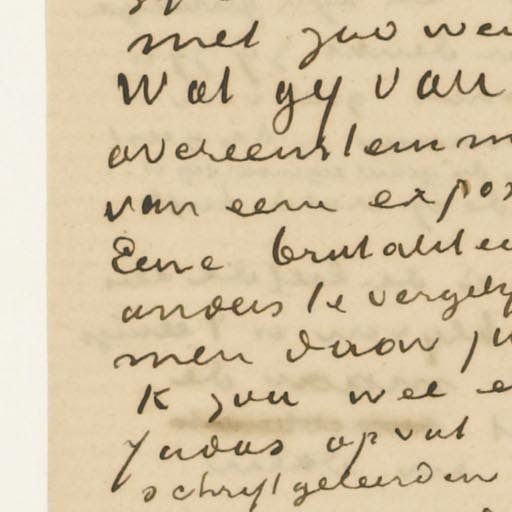 met zoo wei
Wat gy van
overeenstemm
van eene expos
Eene brutalitei
anders te vergely
men daar ju
K zou wel e
Judas opvat
schriftgeleerden